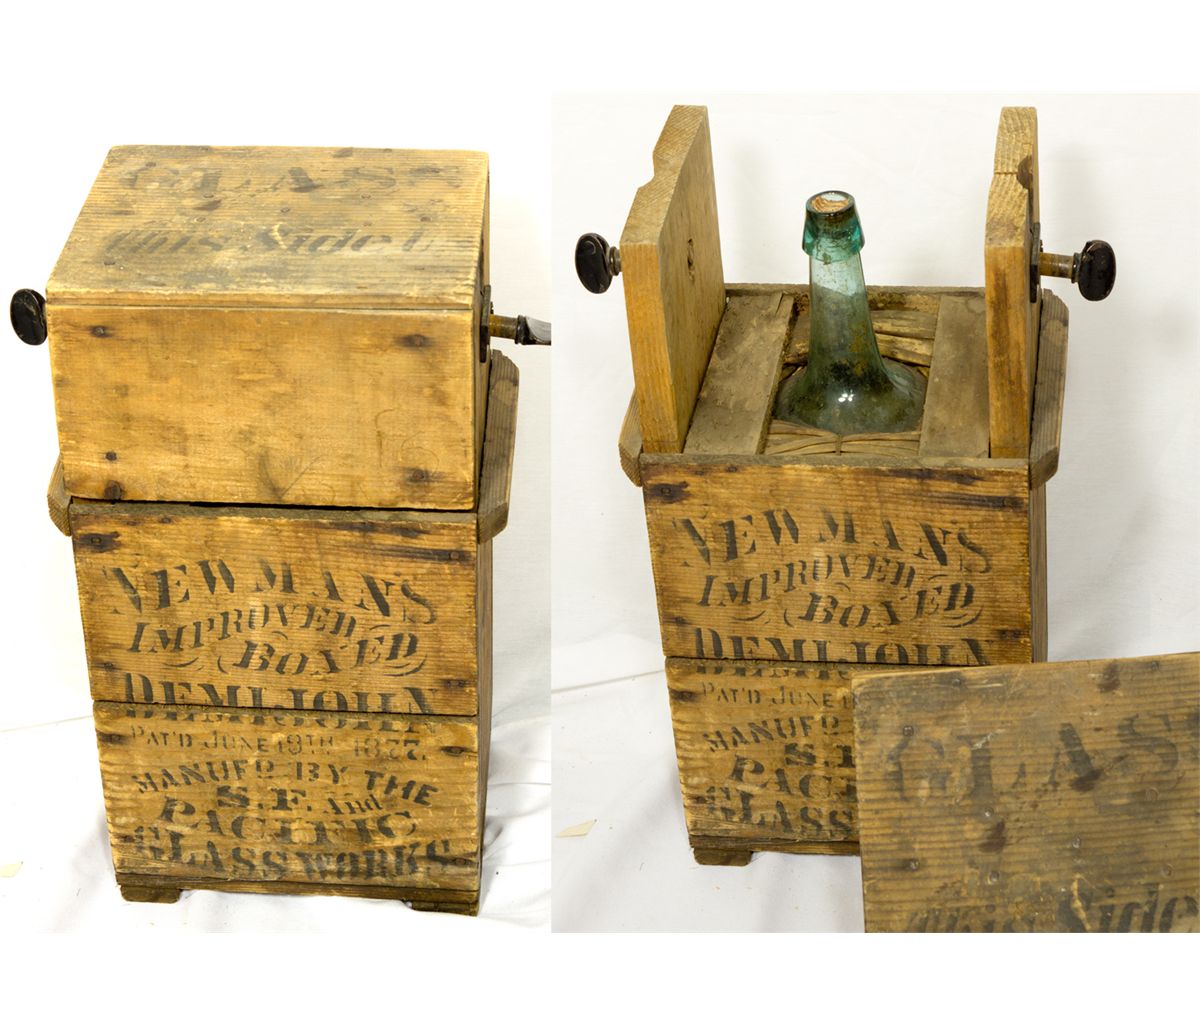 GLASS
this Side
NEWMANS
IMPROVED
BOXED
DEMIJOHN
PAT'D JUNE 19TH 1877.
MANUFD BY THE
S.F. And
PACIFIC
GLASS WORKS
NEWMANS
IMPROVED
BOXED
DEMIJOHN
PAT'D JUNE
MANUFD
S.F
PACIF
GLASS
GLAS
this Side